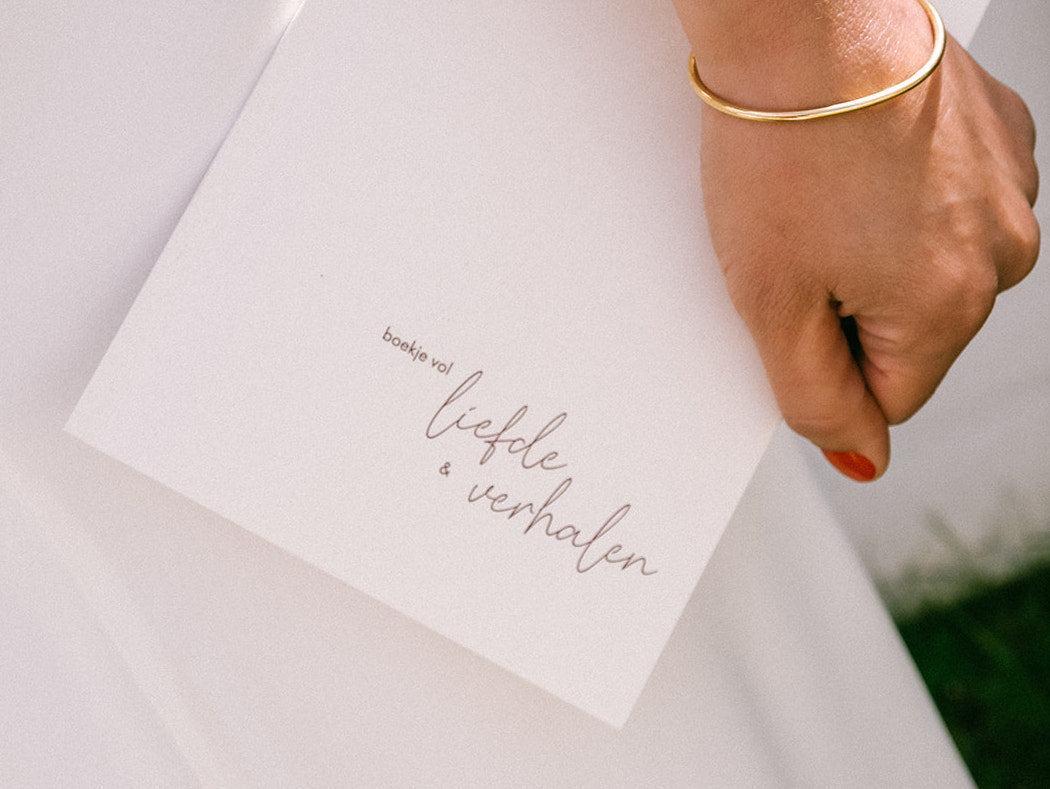 boekje vol
liefde
& verhalen